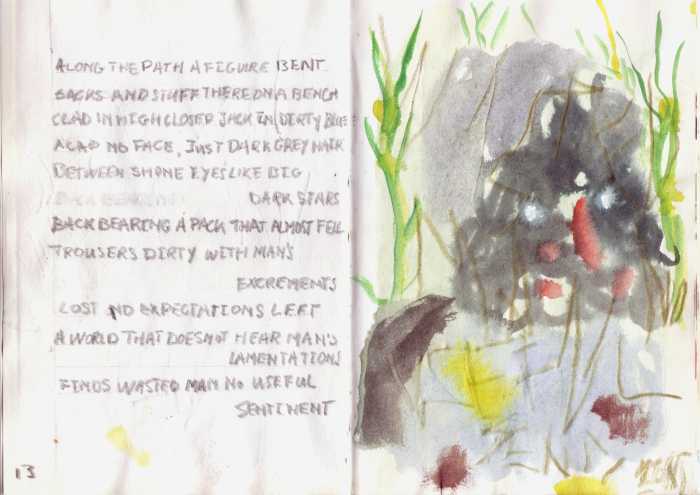 ALONG THE PATH A FIGURE BENT
SACKS AND STUFF THERE ON A BENCH
CLAD IN HIGH CLOSED JACK IN DIRTY BLUE
A CAD NO FACE, JUST DARK GREY HAIR
BETWEEN SHONE EYES LIKE BIG
DARK STARS
BACK BEARING A PACK THAT ALMOST FELL
TROUSERS DIRTY WITH MAN'S
EXCREMENTS
LOST NO EXPECTATIONS LEFT
A WORLD THAT DOES NOT HEAR MAN'S
LAMENTATIONS
FINDS WASTED MAN NO USEFUL
SENTINENT
13